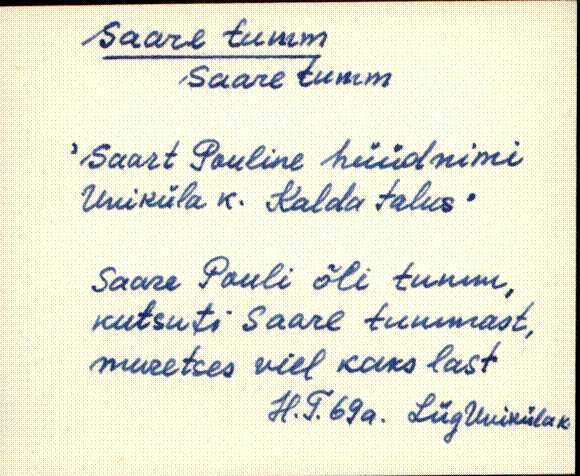 Saare tumm
Saare tumm
'Saart Pouline hüüdnimi
Uniküla k. Kalda talus'
Saare Pouli õli tumm,
kutsuti Saare tummast,
muretses viel kaks last
H.T. 69a. Lüg Uniküla k